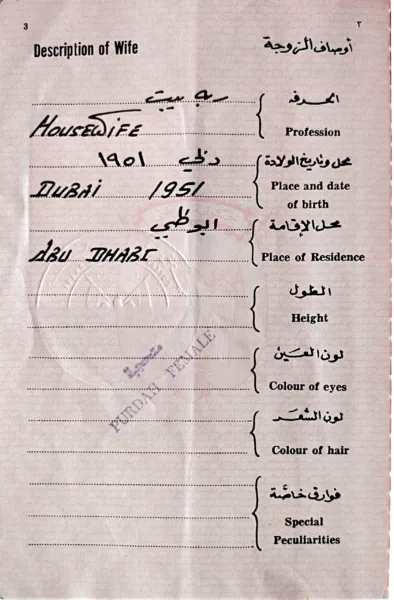 3
٢
Description of Wife
أوصاف الزوجة
ربة بيت
الحرفة
HOUSEWIFE
Profession
دبي ١٩٥١
محل وتاريخ الولادة
DUBAI 1951
Place and date
of birth
ابوظبي
محل الإقامة
ABU DHABI
Place of Residence
الطول
Height
لون العين
Colour of eyes
PURDAH FEMALE
لون الشعر
Colour of hair
فوارق خاصة
Special
Peculiarities